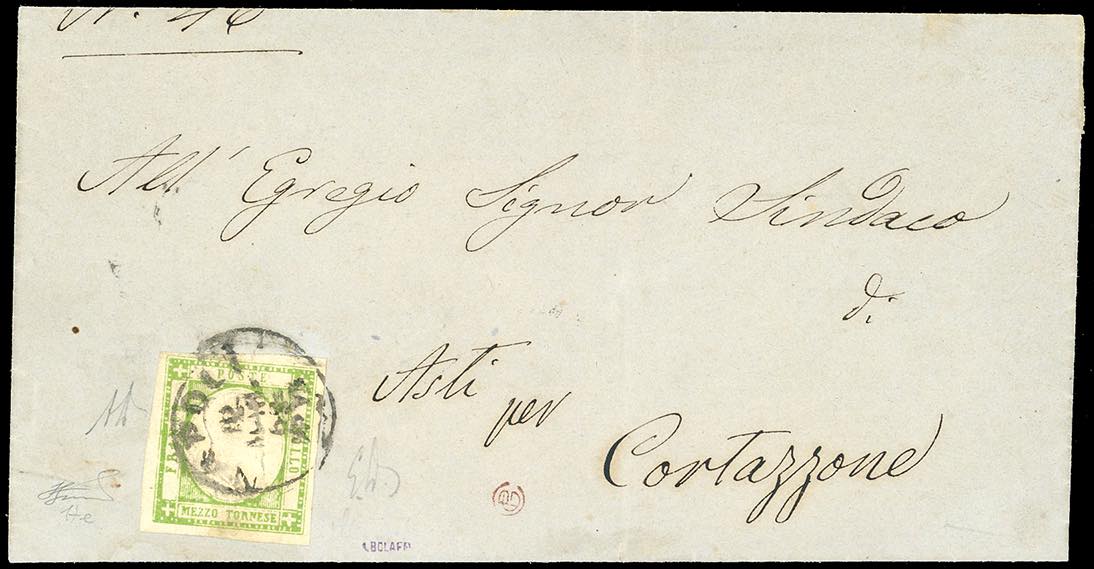 N. 46
All' Egregio Signor Sindaco
di
Asti per
Cortazzone
POSTE
FRANCO BOLLO
MEZZO TORNESE
NAPOLI
BOLAFFI